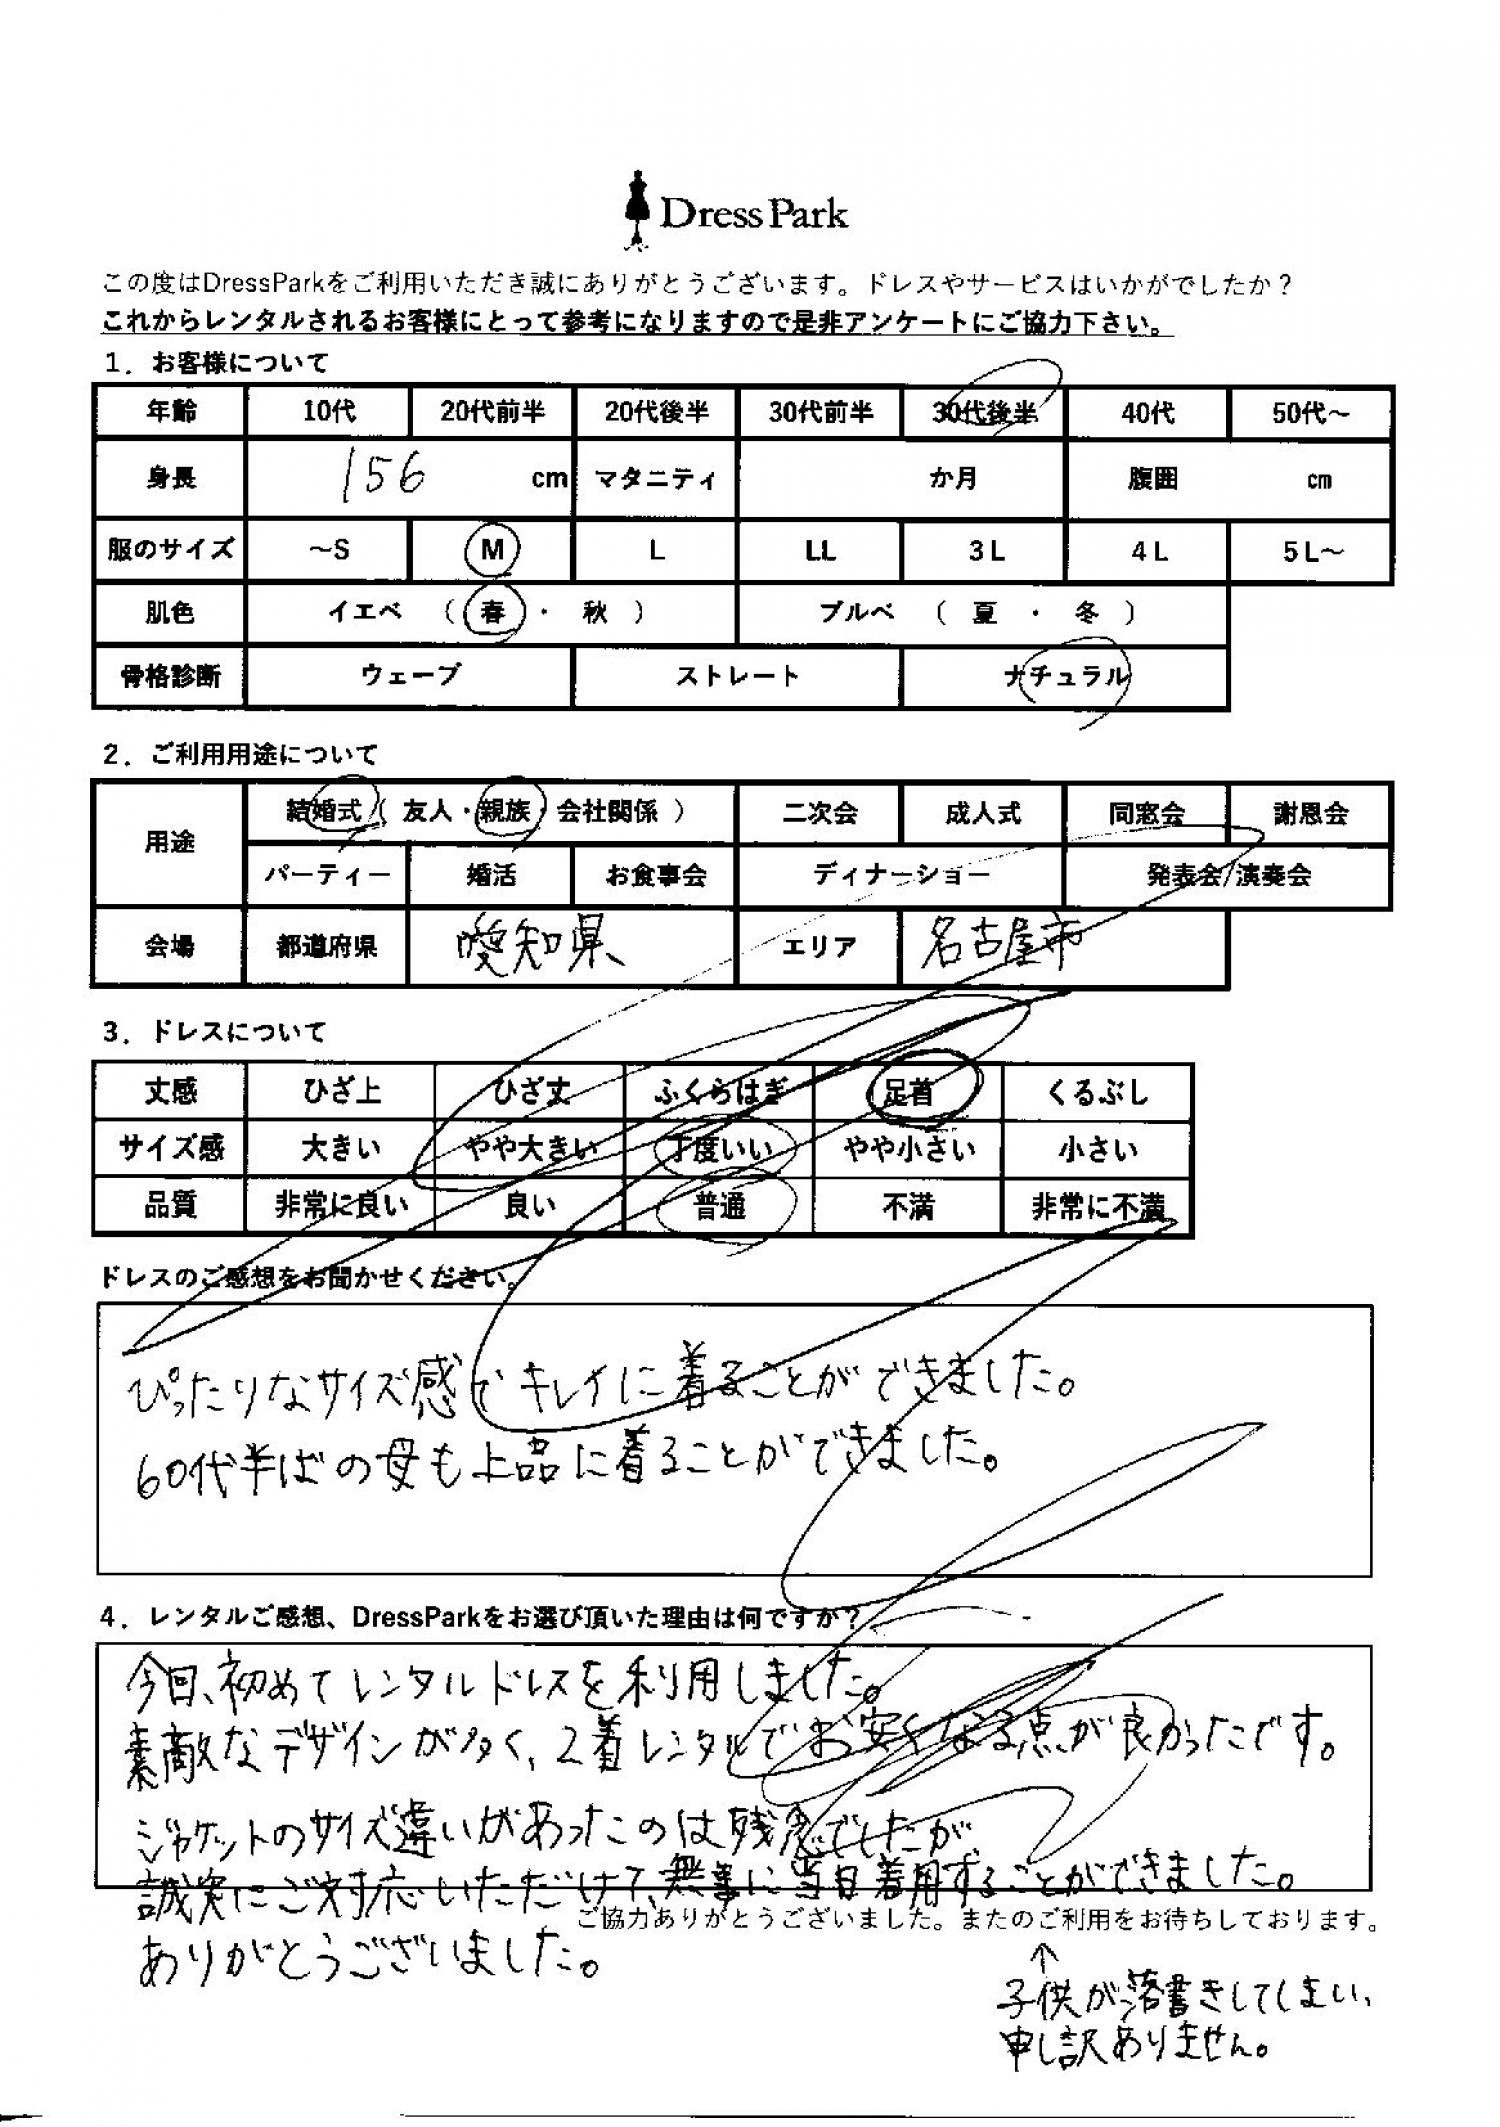 Dress Park
この度はDressParkをご利用いただき誠にありがとうございます。ドレスやサービスはいかがでしたか？
これからレンタルされるお客様にとって参考になりますので是非アンケートにご協力下さい。
1．お客様について
年齢 10代 20代前半 20代後半 30代前半 30代後半 40代 50代～
身長 156 cm マタニティ か月 腹囲 cm
服のサイズ ～S M L LL 3L 4L 5L～
肌色 イエベ （ 春 ・ 秋 ） ブルベ （ 夏 ・ 冬 ）
骨格診断 ウェーブ ストレート ナチュラル
2．ご利用用途について
用途 結婚式（ 友人・親族・会社関係 ） 二次会 成人式 同窓会 謝恩会
パーティー 婚活 お食事会 ディナーショー 発表会/演奏会
会場 都道府県 愛知県 エリア 名古屋市
3．ドレスについて
丈感 ひざ上 ひざ丈 ふくらはぎ 足首 くるぶし
サイズ感 大きい やや大きい 丁度いい やや小さい 小さい
品質 非常に良い 良い 普通 不満 非常に不満
ドレスのご感想をお聞かせください。
ぴったりなサイズ感でキレイに着ることができました。
60代半ばの母も上品に着ることができました。
4．レンタルご感想、DressParkをお選び頂いた理由は何ですか？
今回、初めてレンタルドレスを利用しました。
素敵なデザインが多く、2着レンタルでお安くなる点が良かったです。
ジャケットのサイズ違いがあったのは残念でしたが
誠実にご対応いただけて、無事に当日着用することができました。
ご協力ありがとうございました。またのご利用をお待ちしております。
ありがとうございました。
↑
子供が落書きしてしまい、
申し訳ありません。